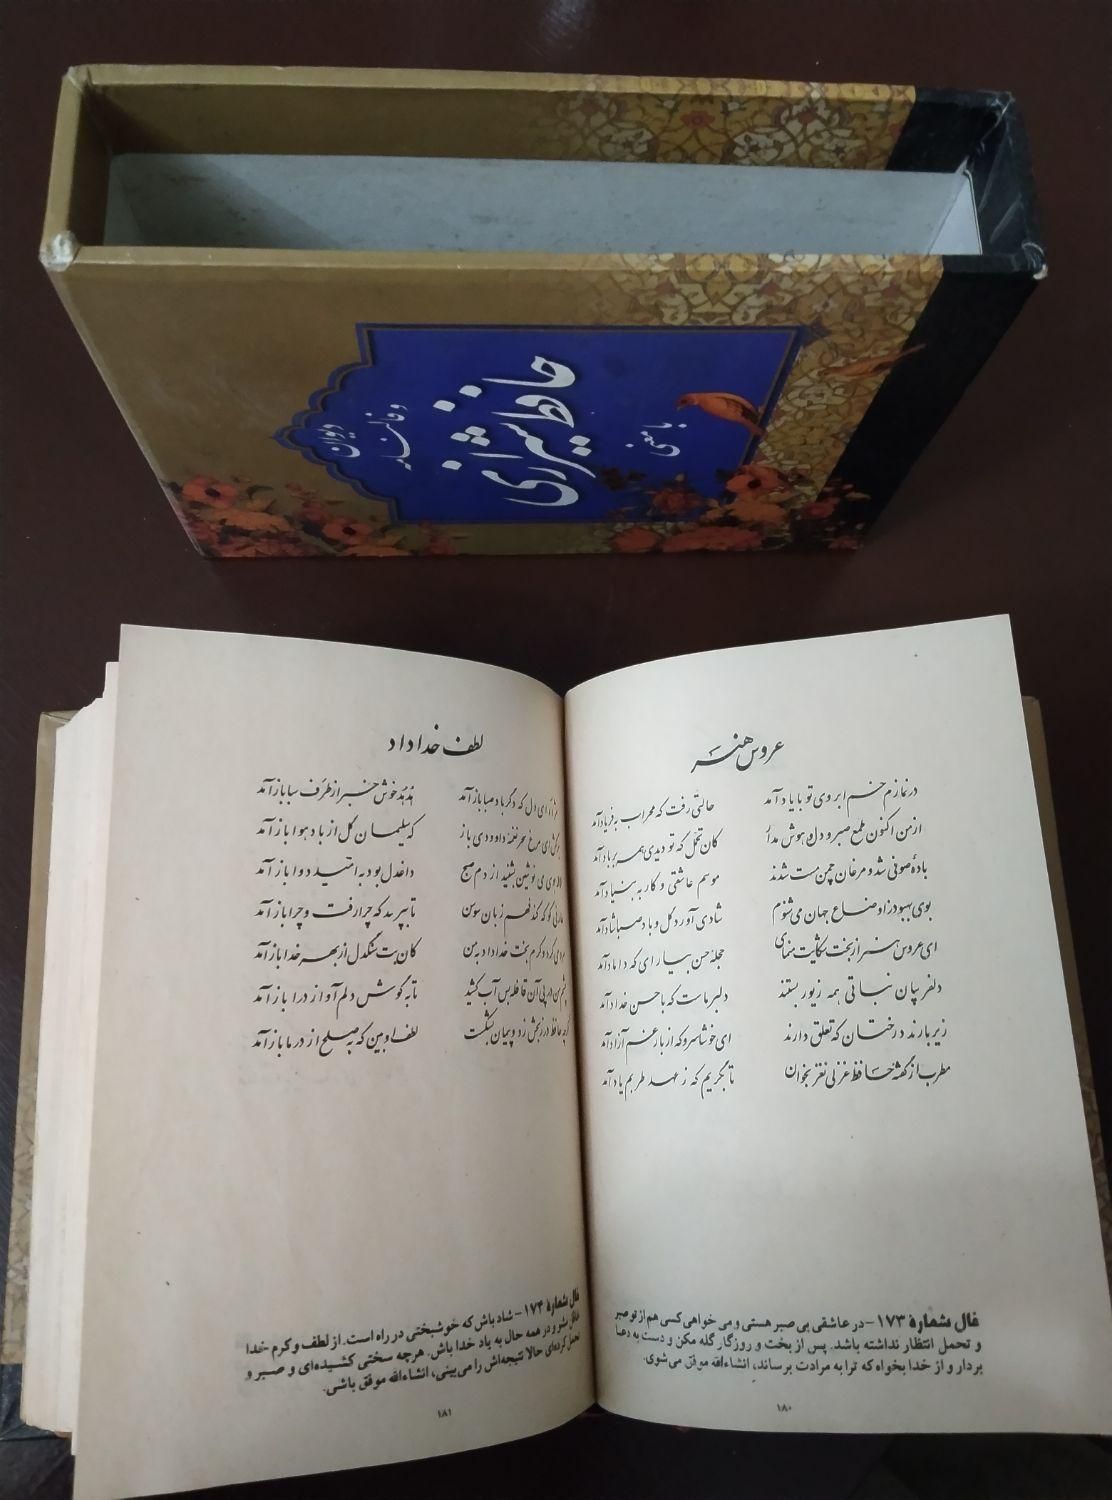 دیوان
و فالنامه
حافظ شیرازی
با معنی
عروس هنر
در نمازم خم ابروی تو با یاد آمد
حالتی رفت که محراب به فریاد آمد
از من اکنون طمع صبر و دل و هوش مدار
کان تحمل که تو دیدی همه بر باد آمد
باده صافی شد و مرغان چمن مست شدند
موسم عاشقی و کار به بنیاد آمد
بوی بهبود ز اوضاع جهان می شنوم
شادی آورد گل و باد صبا شاد آمد
ای عروس هنر از بخت شکایت منمای
حجله حسن بیارای که داماد آمد
دلفریبان نباتی همه زیور بستند
دلبر ماست که با حسن خداداد آمد
زیر بارند درختان که تعلق دارند
ای خوشا سرو که از بار غم آزاد آمد
مطرب از گفته حافظ غزلی نغز بخوان
تا بگریم که ز عهد طربم یاد آمد
فال شماره ۱۷۳- در عاشقی بی صبر هستی و می خواهی کسی هم از تو صبر
و تحمل انتظار نداشته باشد. پس از بخت و روزگار گله مکن و دست به دعا
بردار و از خدا بخواه که ترا به مرادت برساند، انشاءالله موفق می شوی.
۱۸۰
لطف خداداد
ای دل که دگر باد صبا باز آمد
هدهد خوش خبر از طرف سبا باز آمد
ای مرغ سحر نغمه داودی باز
که سلیمان گل از باد هوا باز آمد
لاله بوی می نوشین بشنید از دم صبح
داغ دل بود به امید دوا باز آمد
عارفی کو که کند فهم زبان سوسن
تا بپرسد که چرا رفت و چرا باز آمد
مردمی کرد و کرم بخت خداداد به من
کان بت سنگدل از بهر خدا باز آمد
چشم من در پی آن قافله بس آب کشید
تا به گوش دلم آواز درا باز آمد
گرچه حافظ در رنجش زد و پیمان بشکست
لطف او بین که به صلح از در ما باز آمد
فال شماره ۱۷۴- شاد باش که خوشبختی در راه است. از لطف و کرم خدا
غافل مشو و در همه حال به یاد خدا باش. هرچه سختی کشیده‌ای و صبر و
تحمل کرده‌ای حالا نتیجه‌اش را می‌بینی، انشاءالله موفق باشی.
۱۸۱